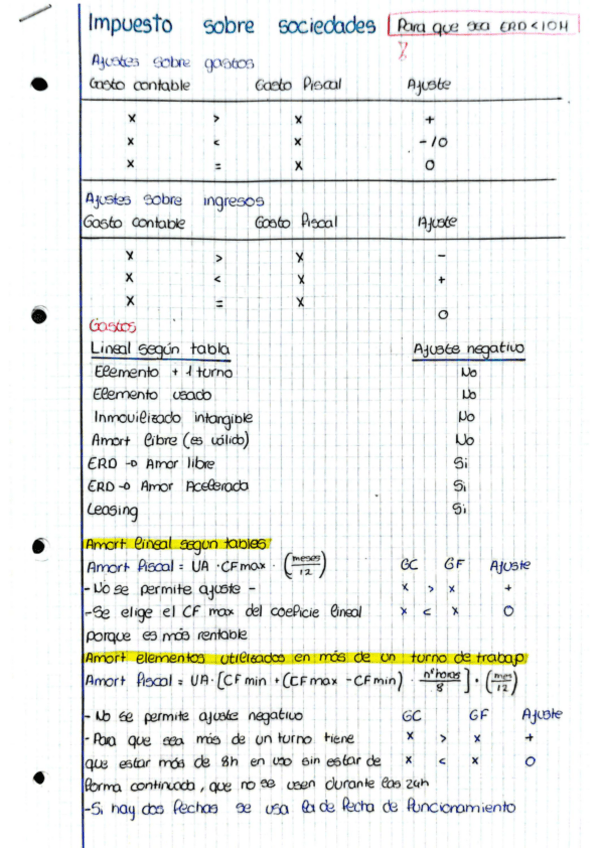 Impuesto sobre sociedades Para que sea ERD < 10M
Ajustes sobre gastos
Gasto contable Gasto Fiscal Ajuste
x > x +
x < x -/0
x = x 0
Ajustes sobre ingresos
Gasto contable Gasto Fiscal Ajuste
x > x -
x < x +
x = x 0
Gastos
Lineal según tabla Ajuste negativo
Elemento + 1 turno No
Elemento usado No
Inmovilizado intangible No
Amort libre (es válido) No
ERD → Amor libre Si
ERD → Amor Acelerada Si
Leasing Si
Amort lineal segun tablas
Amort fiscal = VA · CFmax · (meses/12) GC GF Ajuste
- No se permite ajuste - x > x +
- Se elige el CF max del coeficie lineal x < x 0
porque es más rentable
Amort elementos utilizados en más de un turno de trabajo
Amort fiscal = VA · [CF min + (CF max - CF min) · nº horas/8] · (mes/12)
- No se permite ajuste negativo GC GF Ajuste
- Para que sea más de un turno tiene x > x +
que estar más de 8h en uso sin estar de x < x 0
forma continuada, que no se usen durante las 24h
- Si hay dos fechas se usa la de fecha de funcionamiento